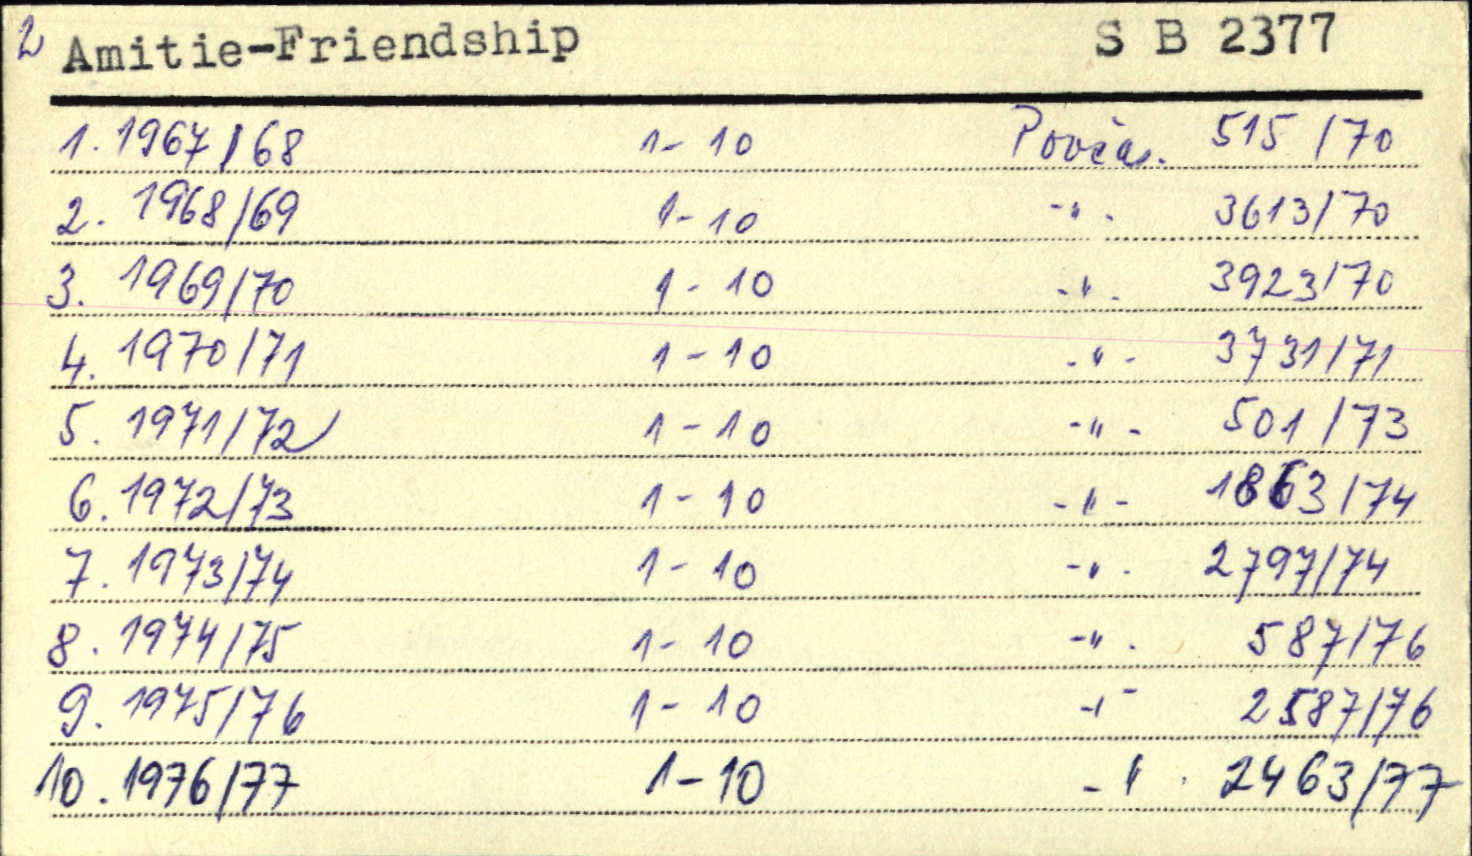 2 Amitie-Friendship S B 2377
1. 1967/68 1-10 Povčas. 515/70
2. 1968/69 1-10 -"- 3613/70
3. 1969/70 1-10 -"- 3923/70
4. 1970/71 1-10 -"- 3731/71
5. 1971/72 1-10 -"- 501/73
6. 1972/73 1-10 -"- 1863/74
7. 1973/74 1-10 -"- 2797/74
8. 1974/75 1-10 -"- 587/76
9. 1975/76 1-10 -"- 2587/76
10. 1976/77 1-10 -"- 2463/77